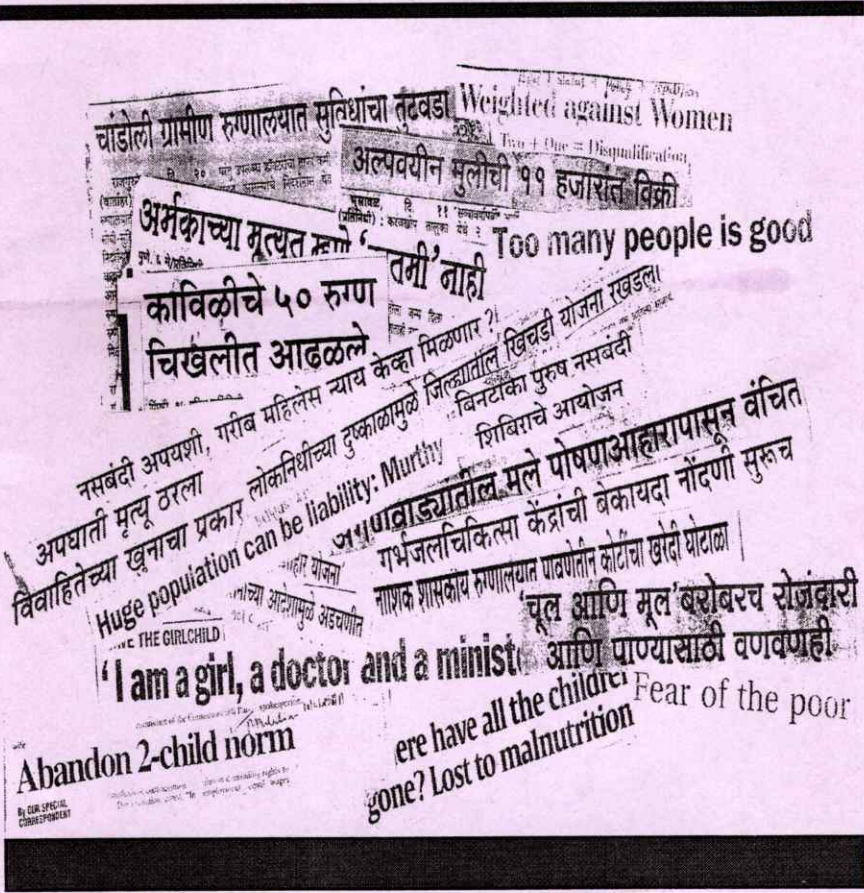 चांडोली ग्रामीण रुग्णालयात सुविधांचा तुटवडा
Weighted against Women
Two + One = Disqualification
अल्पवयीन मुलीची ११ हजारांत विक्री
अर्भकाच्या मृत्यूत म्हणे '
तमी' नाही
Too many people is good
काविळीचे ५० रुग्ण
चिखलीत आढळले
नसबंदी अपयशी, गरीब महिलेस न्याय केव्हा मिळणार ?
अपघाती मृत्यू ठरला
विवाहितेच्या खुनाचा प्रकार
लोकनिधीच्या दुष्काळामुळे जिल्ह्यातील खिचडी योजना रखडली
बिनटाका पुरुष नसबंदी
शिबिराचे आयोजन
Huge population can be liability: Murthy
अंगणवाड्यातील मुले पोषणआहारापासून वंचित
गर्भजलचिकित्सा केंद्रांची बेकायदा नोंदणी सुरूच
नाशिक शासकीय रुग्णालयात पावणेतीन कोटींचा खरेदी घोटाळा
हार योजना
च्या आदेशामुळे अडचणीत
'चूल आणि मूल' बरोबरच रोजंदारी
आणि पाण्यासाठी वणवणही
THE GIRLCHILD
'I am a girl, a doctor and a minist
Fear of the poor
ere have all the childre
gone? Lost to malnutrition
Abandon 2-child norm
By OUR SPECIAL
CORRESPONDENT